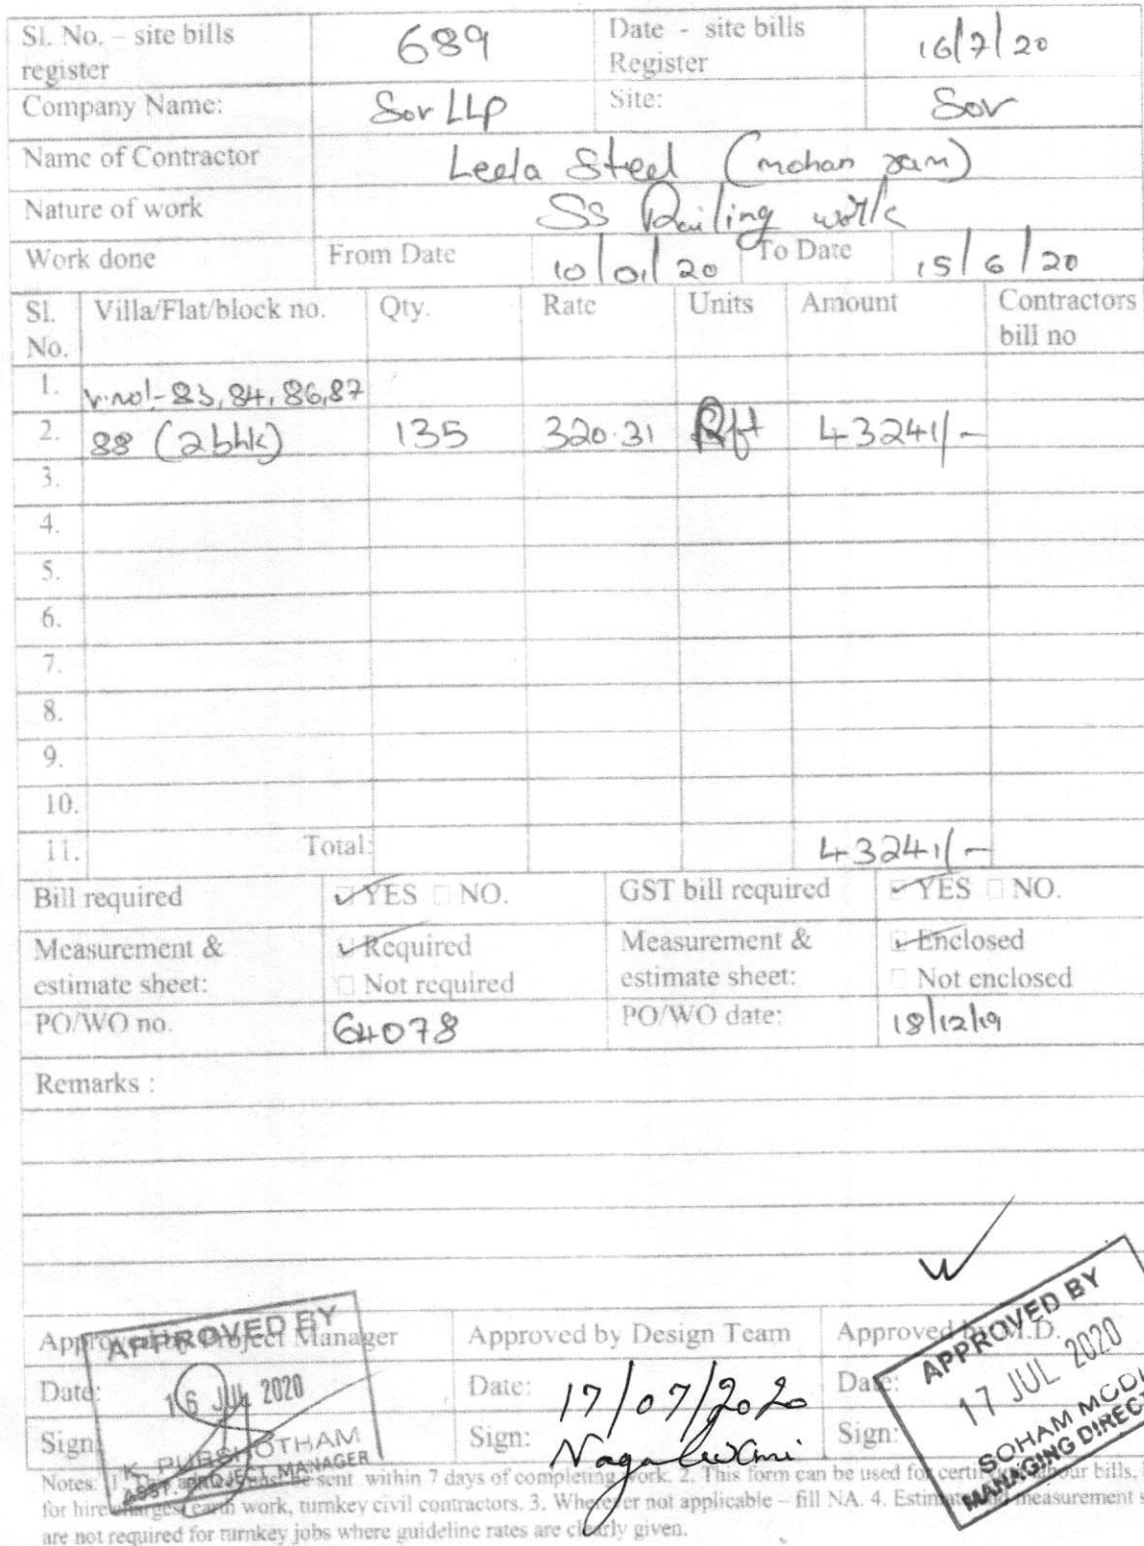 Sl. No. – site bills register 689 Date - site bills Register 16/7/20
Company Name: Sov LLP Site: Sov
Name of Contractor Leela Steel (mohan ram)
Nature of work SS Railing work
Work done From Date 10/01/20 To Date 15/6/20
Sl. No. Villa/Flat/block no. Qty. Rate Units Amount Contractors bill no
1. v.no!- 83, 84, 86, 87
2. 88 (2bhk) 135 320.31 Rft 43241/-
3.
4.
5.
6.
7.
8.
9.
10.
11. Total: 43241/-
Bill required YES NO. GST bill required YES NO.
Measurement & estimate sheet: Required Not required Measurement & estimate sheet: Enclosed Not enclosed
PO/WO no. 64078 PO/WO date: 18/12/19
Remarks :
Approved by Project Manager Approved by Design Team Approved by M.D.
Date: Date: 17/07/2020 Date:
Sign: Sign: Sign:
APPROVED BY
16 JUL 2020
K. PURSHOTHAM
ASST. PROJECT MANAGER
APPROVED BY
17 JUL 2020
SOHAM MODI
MANAGING DIRECT
Notes: 1. This must be sent within 7 days of completing work. 2. This form can be used for labour bills,
for hire charges, earth work, turnkey civil contractors. 3. Wherever not applicable – fill NA. 4. Estimate and measurement s
are not required for turnkey jobs where guideline rates are clearly given.